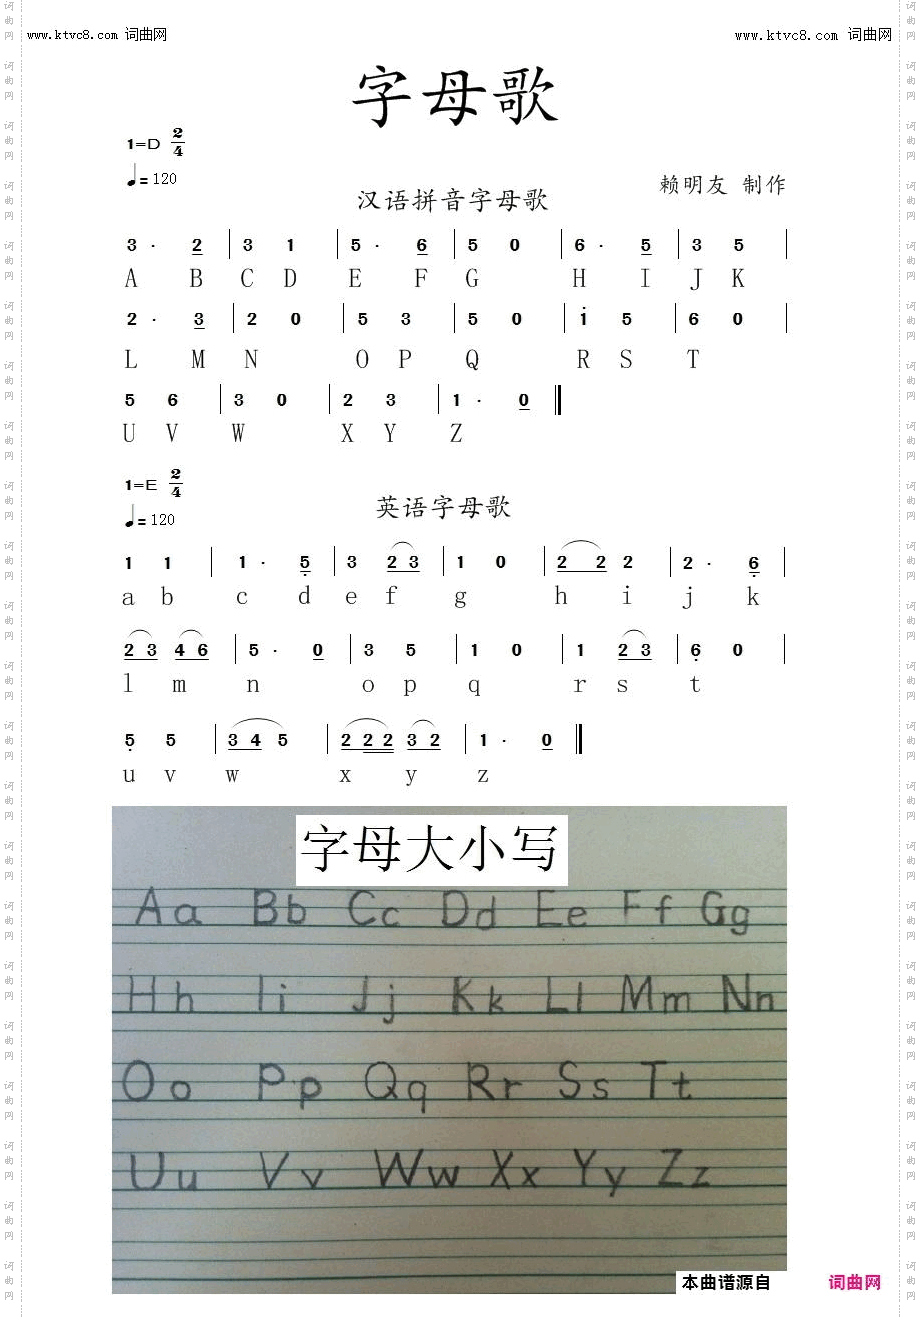 www.ktvc8.com 词曲网
www.ktvc8.com 词曲网
字母歌
1=D 2/4
♩=120
赖明友 制作
汉语拼音字母歌
3 · 2 | 3 1 | 5 · 6 | 5 0 | 6 · 5 | 3 5 |
A B C D E F G H I J K
2 · 3 | 2 0 | 5 3 | 5 0 | 1 5 | 6 0 |
L M N O P Q R S T
5 6 | 3 0 | 2 3 | 1 · 0 ‖
U V W X Y Z
1=E 2/4
♩=120
英语字母歌
1 1 | 1 · 5 | 3 2 3 | 1 0 | 2 2 2 | 2 · 6 |
a b c d e f g h i j k
2 3 4 6 | 5 · 0 | 3 5 | 1 0 | 1 2 3 | 6 0 |
l m n o p q r s t
5 5 | 3 4 5 | 2 2 2 3 2 | 1 · 0 ‖
u v w x y z
字母大小写
Aa Bb Cc Dd Ee Ff Gg
Hh Ii Jj Kk Ll Mm Nn
Oo Pp Qq Rr Ss Tt
Uu Vv Ww Xx Yy Zz
本曲谱源自 词曲网